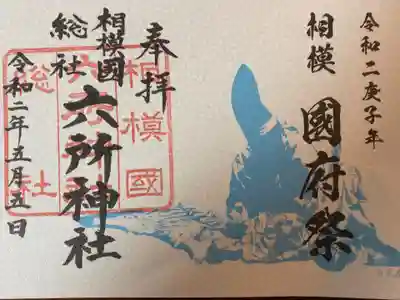 令和二庚子年
相模 國府祭
奉拝
相模國
総社
六所神社
令和二年五月五日
相模國
六所神
総社